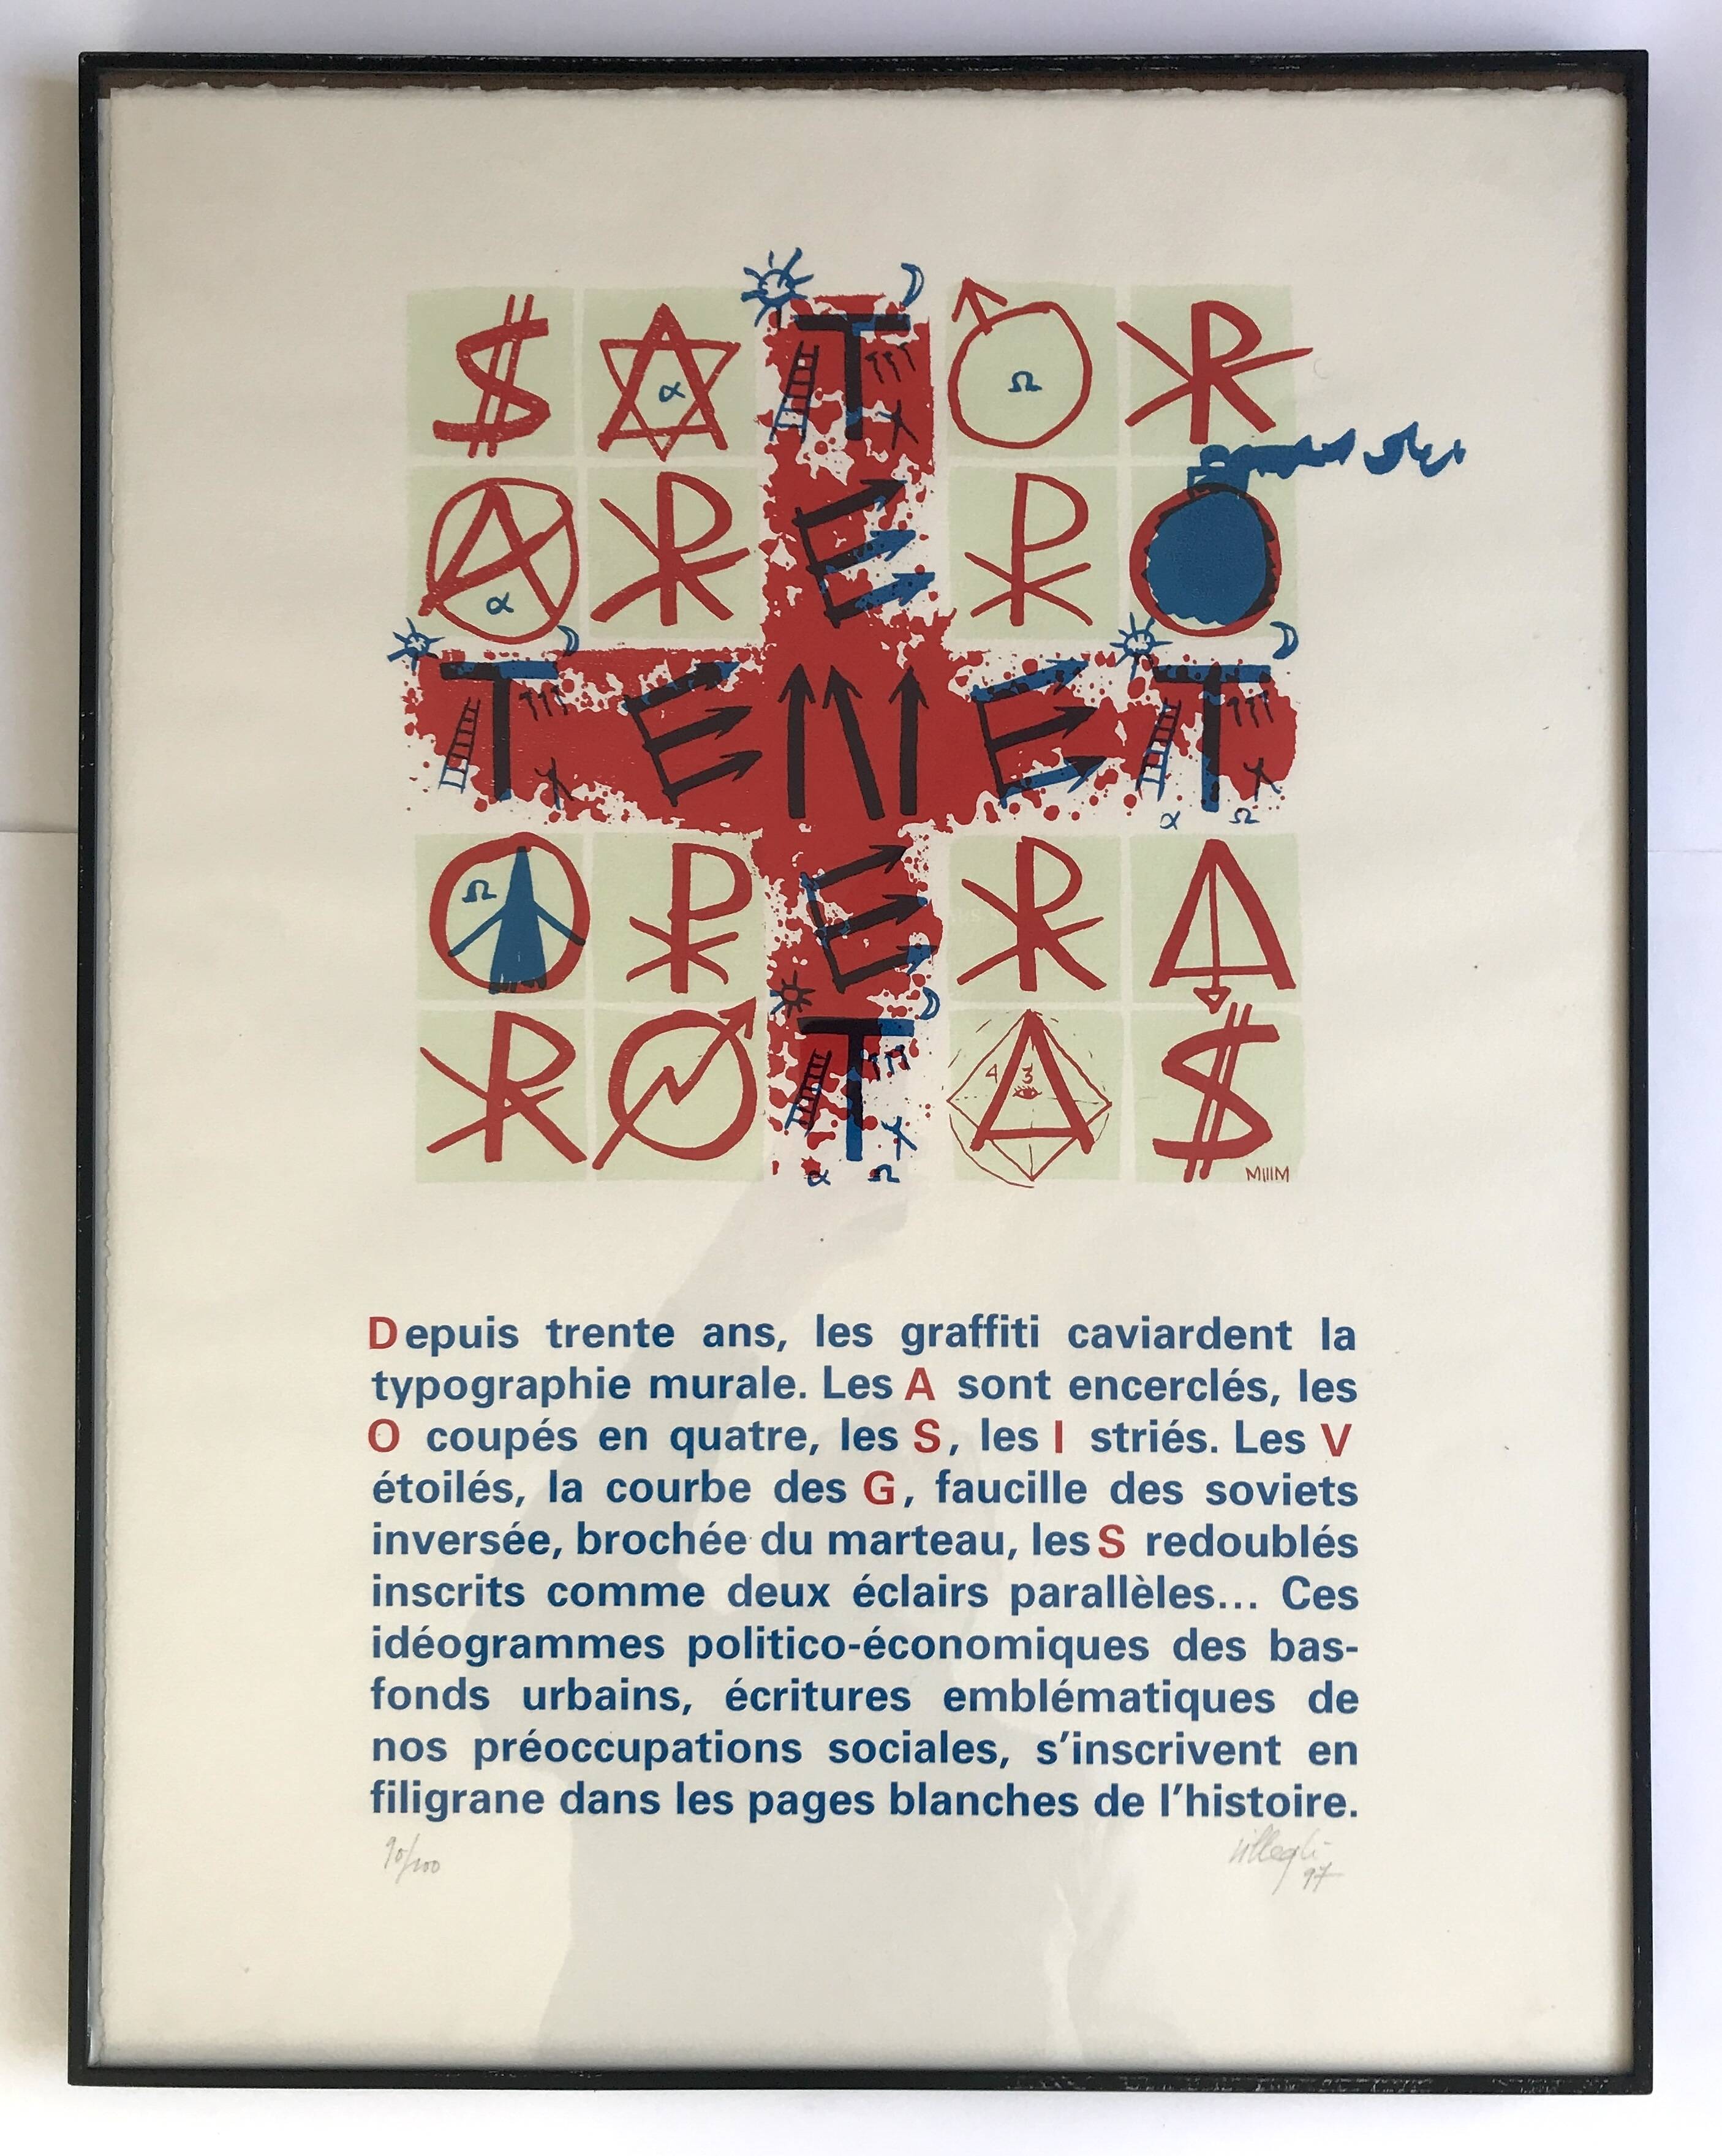 $ A T O R
α Ω
A R E P O
α
T E N E T
α Ω
O P E R A
Ω
R O T A $
4 3
α Ω
MIIIM
Depuis trente ans, les graffiti caviardent la
typographie murale. Les A sont encerclés, les
O coupés en quatre, les S, les I striés. Les V
étoilés, la courbe des G, faucille des soviets
inversée, brochée du marteau, les S redoublés
inscrits comme deux éclairs parallèles... Ces
idéogrammes politico-économiques des bas-
fonds urbains, écritures emblématiques de
nos préoccupations sociales, s'inscrivent en
filigrane dans les pages blanches de l'histoire.
90/100 Villeglé
97